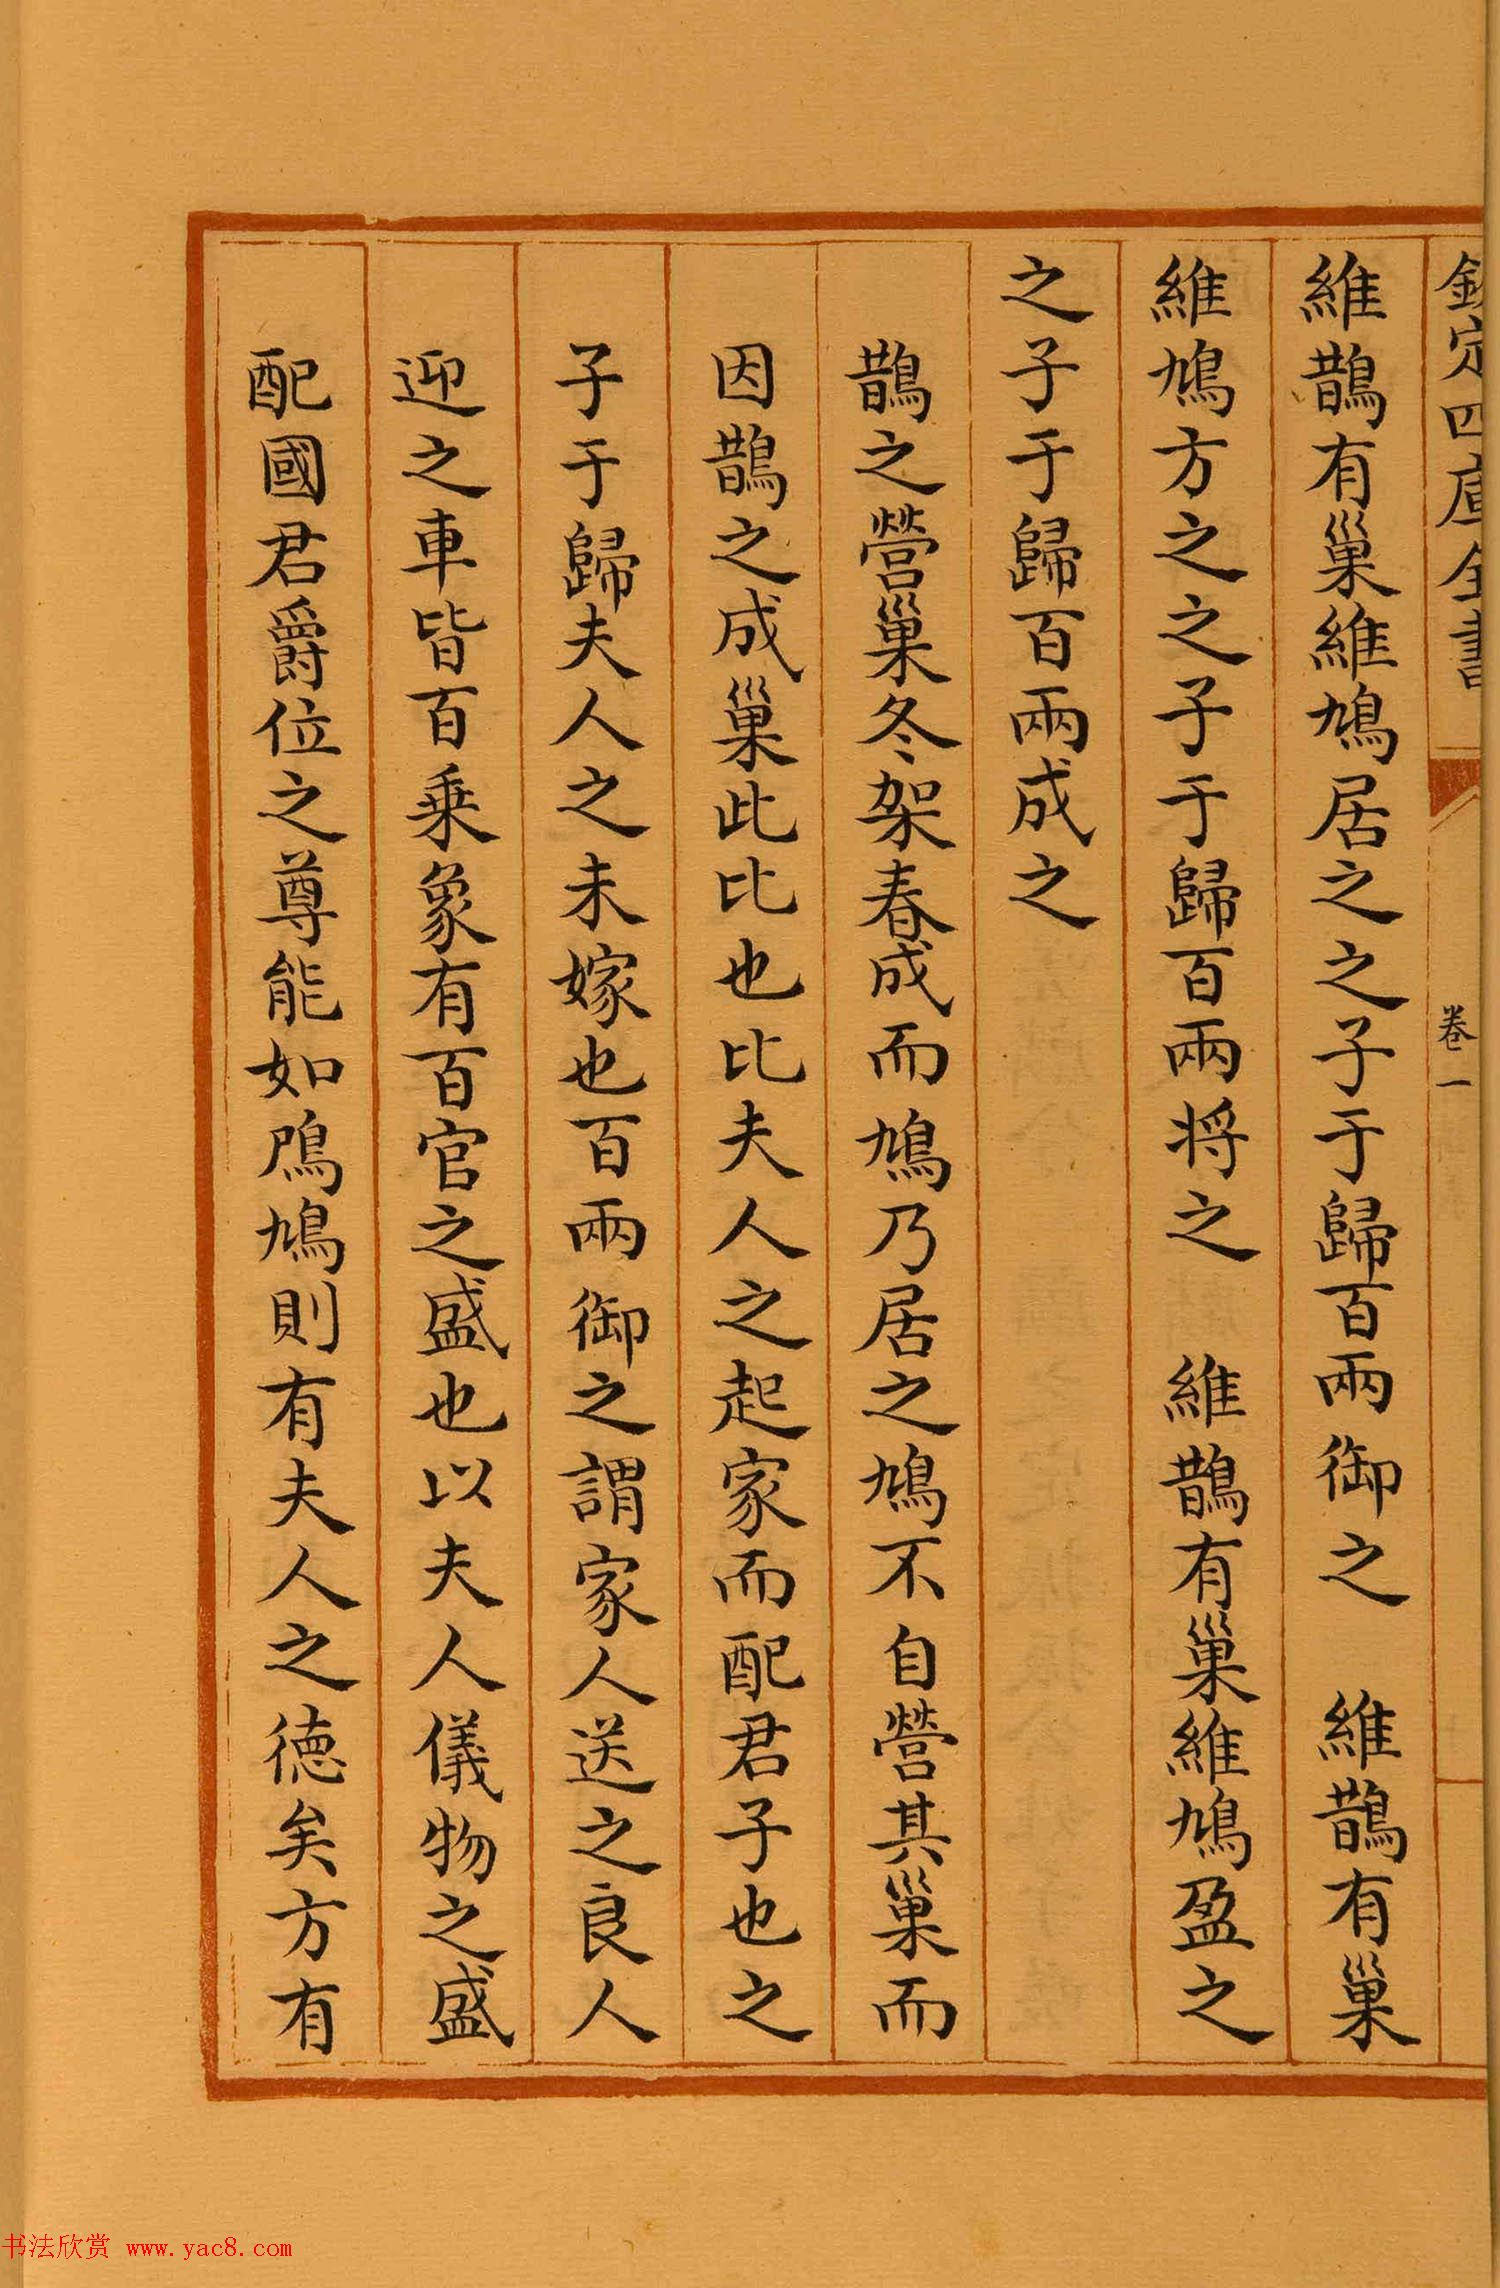 欽定四庫全書
卷一
維鵲有巢維鳩居之之子于歸百兩御之　維鵲有巢
維鳩方之之子于歸百兩将之　維鵲有巢維鳩盈之
之子于歸百兩成之
鵲之營巢冬架春成而鳩乃居之鳩不自營其巢而
因鵲之成巢此比也比夫人之起家而配君子也之
子于歸夫人之未嫁也百兩御之謂家人送之良人
迎之車皆百乗象有百官之盛也以夫人儀物之盛
配國君爵位之尊能如鳲鳩則有夫人之徳矣方有
书法欣赏 www.yac8.com